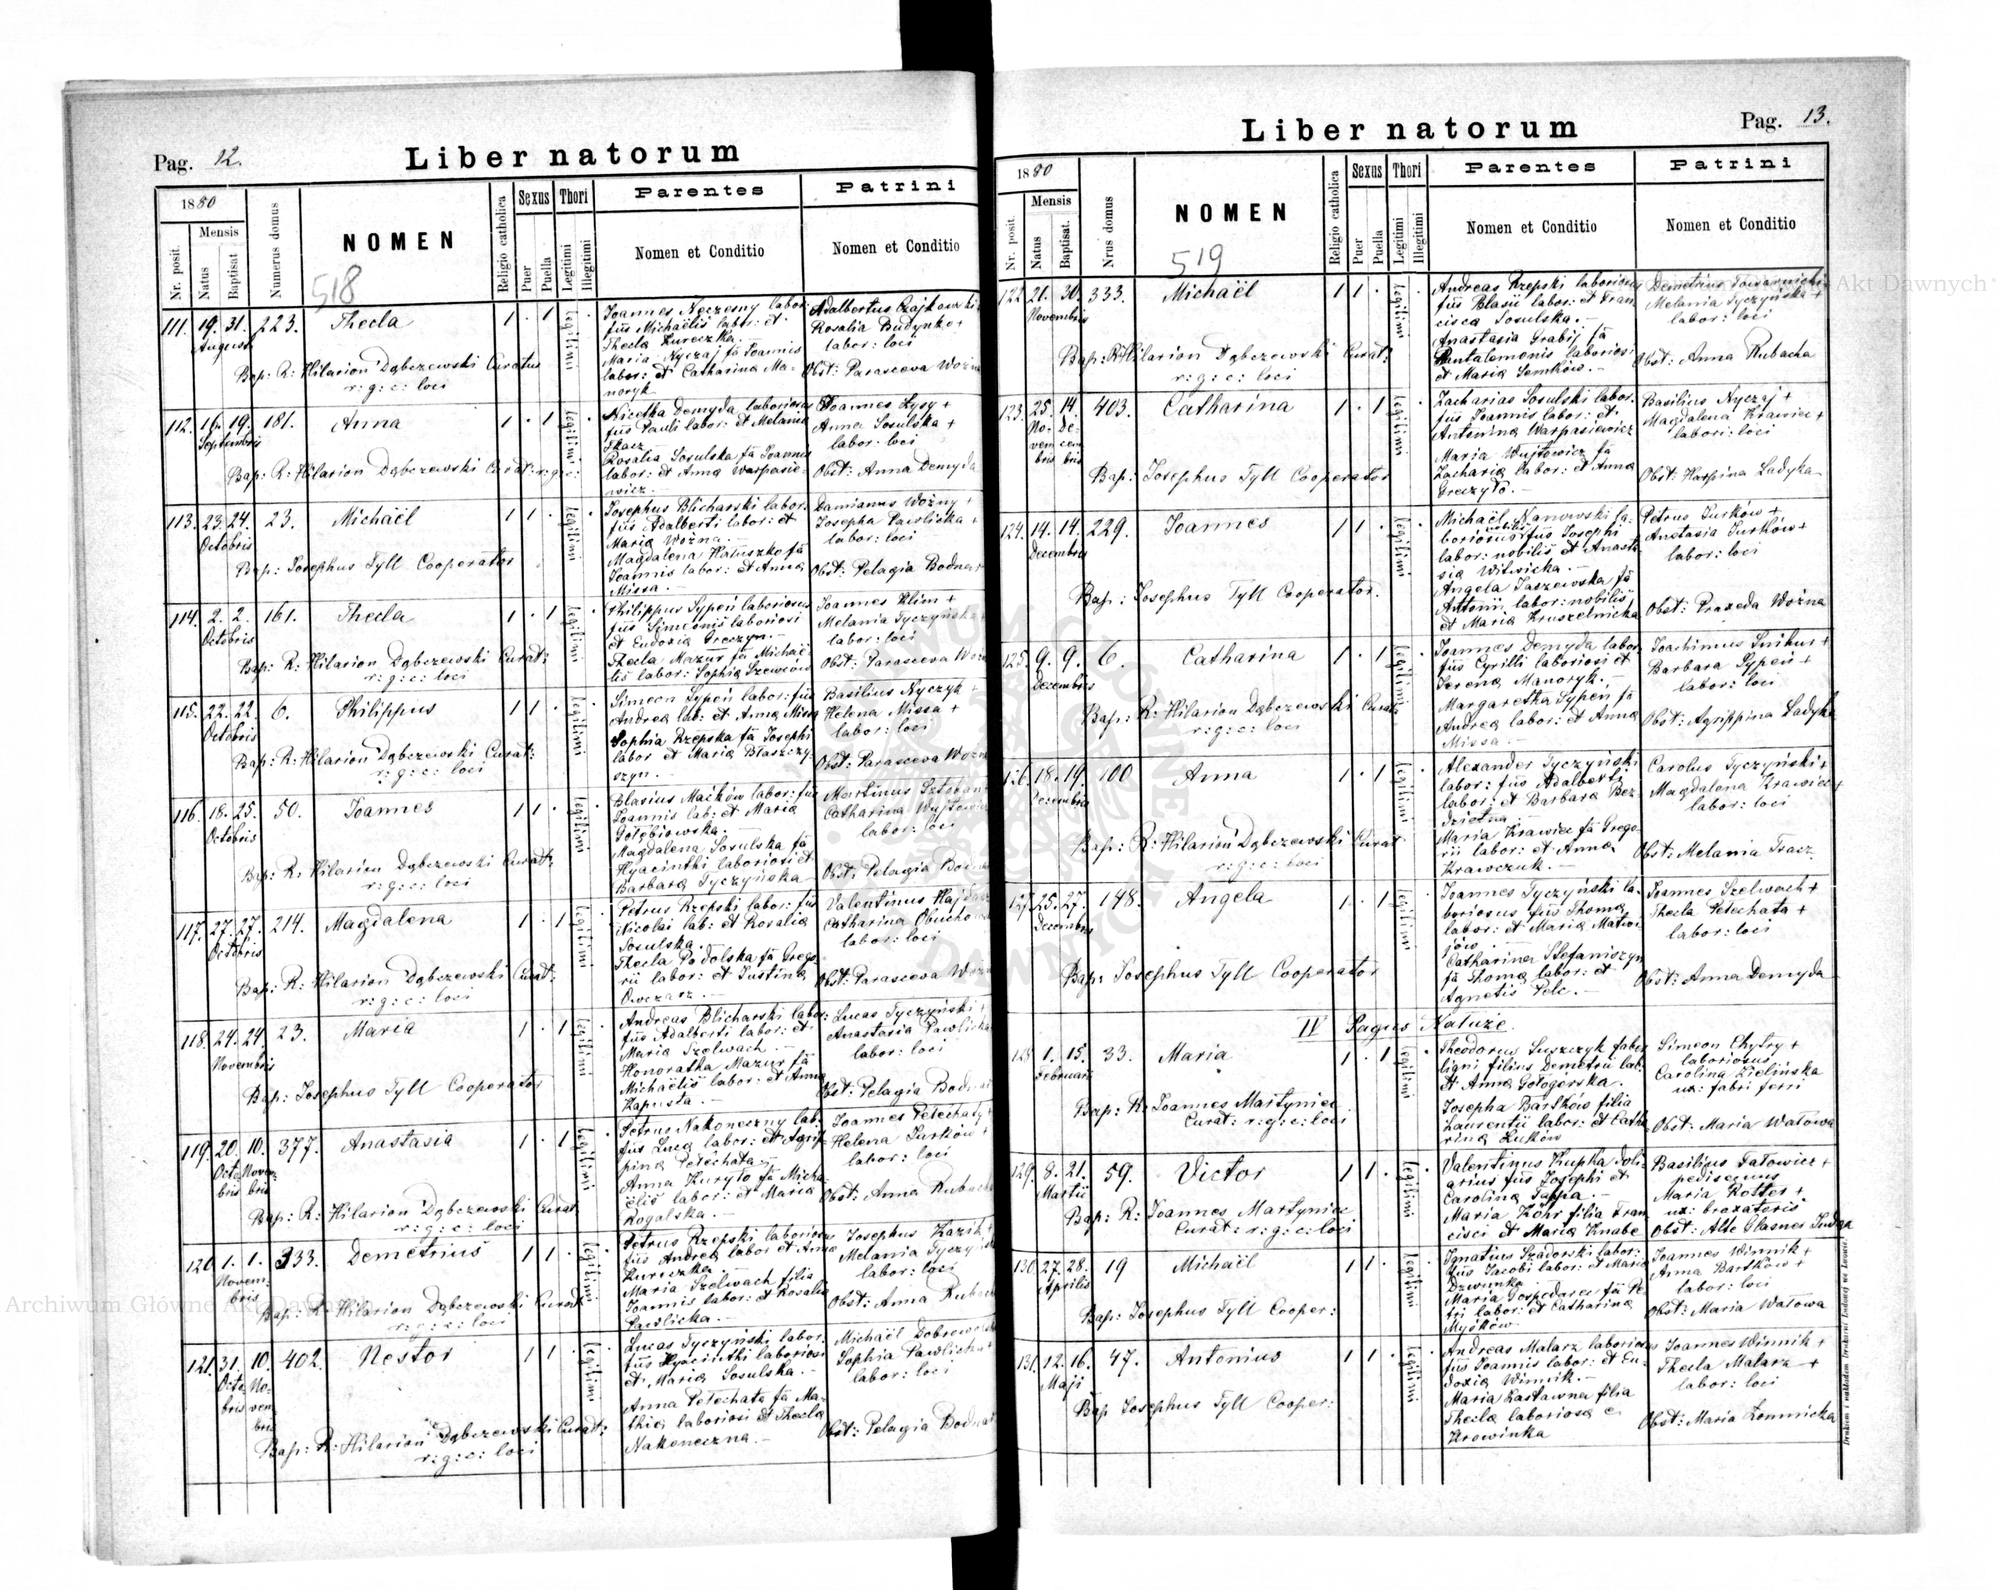 Pag. 12.
Liber natorum
1880
Mensis
Nr. posit.
Natus
Baptisat
Numerus domus
NOMEN
518
Religio catholica
Sexus
Puer
Puella
Thori
Legitimi
Illegitimi
Parentes
Nomen et Conditio
Patrini
Nomen et Conditio
111. 19. 31. 223. Thecla 1 . 1 Legitimi
Augusti
Bap: R: Hilarion Dąbczewski Curatus
r: g: c: loci
Joannes Nyczesny labor:
fius Michaëlis labor: et
Thecla Zureczka. —
Maria Nyczaj fa Joannis
labor: et Catharina Ma-
noryk.
Adalbertus Czajkowski
Rosalia Budynko +
labor: loci
Obst: Parasceva Woźna
112. 16. 19. 181. Anna 1 . 1 Legitimi
Septembris
Bap: R: Hilarion Dąbczewski Curat: r: g: c:
Nicetka Demyda laboriosus
fius Pauli labor: et Melania
Tkacz
Rosalia Sosulska fa Joannis
labor: et Anna Warpasie-
wicz. —
Joannes Łysy +
Anna Sosulska +
labor: loci
Obst: Anna Demyda
113. 23. 24. 23. Michaël 1 1 . Legitimi
Octobris
Bap: Josephus Tyll Cooperator
Josephus Blicharski labor:
fius Adalberti labor: et
Maria Woźna. —
Magdalena Hałuszko fa
Joannis labor: et Anna
Missa. —
Damianus Woźny +
Josepha Pawliska +
labor: loci
Obst: Pelagia Bodnar
114. 2. 2. 161. Thecla 1 . 1 Legitimi
Octobris
Bap: R: Hilarion Dąbczewski Curat:
r: g: c: loci
Philippus Sypeń laboriosus
fius Simeonis laboriosi
et Eudoxia Greczyn. —
Thecla Mazur fa Michaë-
lis labor: Sophia Szewców
Joannes Klim +
Melania Tyczyńska +
labor: loci
Obst: Parasceva Woźna
115. 22. 22. 6. Philippus 1 1 . Legitimi
Octobris
Bap: R: Hilarion Dąbczewski Curat:
r: g: c: loci
Simeon Sypeń labor: fius
Andrea lab: et Anna Missa
Sophia Rzepska fa Josephi
labor et Maria Błaszczy-
szyn. —
Basilius Nyczyk +
Helena Missa +
labor: loci
Obst: Parasceva Woźna
116. 18. 25. 50. Joannes 1 1 . Legitimi
Octobris
Bap: R: Hilarion Dąbczewski Curat:
r: g: c: loci
Blasius Maików labor: fius
Joannis lab: et Maria
Gołębiowska. —
Magdalena Sosulska fa
Hyacinthi laboriosi et
Barbara Tyczyńska
Martinus
Catharina Wujtowicz
labor: loci
Obst: Pelagia Bodnar
117. 27. 27. 214. Magdalena 1 . 1 Legitimi
Octobris
Bap: R: Hilarion Dąbczewski Curat:
r: g: c: loci
Petrus Rzepski labor: fius
Nicolai lab: et Rosalia
Sosulska.
Thecla Podolska fa Grego-
rii labor: et Justina
Owczarz. —
Valentinus
Catharina
labor: loci
Obst: Parasceva Woźna
118. 24. 24. 23. Maria 1 . 1 Legitimi
Novembris
Bap: Josephus Tyll Cooperator
Andreas Blicharski labor:
fius Adalberti labor: et
Maria Szelwach. —
Honoratka Mazur fa
Michaëlis labor: et Anna
Kapusta. —
Lucas Tyczyński +
Anastasia Pawliska
labor: loci
Obst: Pelagia Bodnar
119. 20. 10. 377. Anastasia 1 . 1 Legitimi
Octo- Novem-
bris bris
Bap: R: Hilarion Dąbczewski Curat:
r: g: c: loci
Petrus Nakoneczny lab:
fius Luca labor: et Agrip-
pina Petechata —
Anna Kuryło fa Micha-
ëlis labor: et Maria
Rogalska. —
Joannes Petechaty +
Helena Jurków +
labor: loci
Obst: Anna Rubacha
120. 1. 1. 333. Demetrius 1 1 . Legitimi
Novem-
bris
Bap: R: Hilarion Dąbczewski Curat
r: g: c: loci
Petrus Rzepski laboriosus
fius Andrea labor et Anna
Zureczka. —
Maria Szelwach filia
Joannis labor: et Rosalia
Pawlicka. —
Josephus Kazik +
Melania Tyczyńska
labor: loci
Obst: Anna Rubacha
121. 31. 10. 402. Nestor 1 1 . Legitimi
Octo- No-
bris vem-
bris
Bap: R: Hilarion Dąbczewski Curat:
r: g: c: loci
Lucas Tyczyński labor:
fius Hyacinthi laboriosi
et Maria Sosulska. —
Anna Petechata fa Ma-
thia laboriosi et Thecla
Nakoneczna. —
Michaël
Sophia Pawlicka +
labor: loci
Obst: Pelagia Bodnar
Pag. 13.
Liber natorum
1880
Mensis
Nr. posit.
Natus
Baptisat.
Nrus domus
NOMEN
519
Religio catholica
Sexus
Puer
Puella
Thori
Legitimi
Illegitimi
Parentes
Nomen et Conditio
Patrini
Nomen et Conditio
122. 21. 30. 333. Michaël 1 1 . Legitimi
Novembris
Bap: R: Hilarion Dąbczewski Curat:
r: g: c: loci
Andreas Rzepski laboriosus
fius Blasii labor: et Fran-
cisca Sosulska. —
Anastasia Grabij fa
Pantalemonis laboriosi
et Maria Semków. —
Demetrius
Melania Tyczyńska +
labor: loci
Obst: Anna Rubacha
123. 25. 14. 403. Catharina 1 . 1 Legitimi
No- De-
vem- cem-
bris bris
Bap: Josephus Tyll Cooperator
Zacharias Sosulski labor:
fius Joannis labor: et
Antonina Warpasiewicz
Maria Wujtowicz fa
Zacharia labor: et Anna
Greczyło. —
Basilius Nyczaj +
Magdalena Krawiec +
labor: loci
Obst: Harpina Ladyka
124. 14. 14. 229. Joannes 1 1 . Legitimi
Decembris
Bap: Josephus Tyll Cooperator.
Michaël Nanowski la-
boriosus nobilis fius Josephi
labor: nobilis et Anasta-
sia Witwicka. —
Angela Jaszewska fa
Antonii labor: nobilis
et Maria Kruszelnicka
Petrus Jurków +
Anastasia Jurków +
labor: loci
Obst: Praxeda Woźna
125. 9. 9. 6. Catharina 1 . 1 Legitimi
Decembris
Bap: R: Hilarion Dąbczewski Curat:
r: g: c: loci
Joannes Demyda labor:
fius Cyrilli laboriosi et
Irena Manoryk. —
Margaretha Sypeń fa
Andrea labor: et Anna
Missa. —
Joachimus Smikur +
Barbara Sypeń +
labor: loci
Obst: Agrippina Ladyka
126. 18. 19. 100 Anna 1 . 1 Legitimi
Decembris
Bap: R: Hilarion Dąbczewski Curat
r: g: c: loci
Alexander Tyczyński
labor: fius Adalberti
labor: et Barbara Bez-
dzietna. —
Maria Krawiec fa Grego-
rii labor: et Anna
Krawczuk. —
Carolus Tyczyński +
Magdalena Krawiec +
labor: loci
Obst: Melania Tkacz
127. 25. 27. 148. Angela 1 . 1 Legitimi
Decembris
Bap: Josephus Tyll Cooperator
Joannes Tyczyński la-
boriosus fius Thoma
labor: et Maria Matwi-
jów. —
Catharina Stefaniszyn
fa Thoma labor: et
Agnetis Pelc. —
Joannes Szelwach +
Thecla Petechata +
labor: loci
Obst: Anna Demyda
IV Pagus Natuże.
128. 1. 15. 33. Maria 1 . 1 Legitimi
Februarii
Bap: R: Joannes Martyniec
Curat: r: g: c: loci
Theodorus Suszczyk faber
ligni filius Demetrii lab:
et Anna Gołogorska.
Josepha Bartków filia
Laurentii labor: et Catha-
rina Łuków
Simeon Chytry +
laboriosus
Carolina Zielińska
ux: fabri ferri
Obst: Maria Watowa
129. 8. 21. 59. Victor 1 1 . Legitimi
Martii
Bap: R: Joannes Martyniec
Curat: r: g: c: loci
Valentinus Krupka doli-
arius fius Josephi et
Carolina Tappa. —
Maria Köhr filia Fran-
cisci et Maria Knabe
Basilius Fatowicz +
pedisequus
Maria Rotter +
ux: braxatoris
Obst: Alte Glasnes Judaa
130. 27. 28. 19 Michaël 1 1 . Legitimi
Aprilis
Bap: Josephus Tyll Cooper:
Ignatius Szadorski labor:
fius Jacobi labor: et Maria
Dzwunka
Maria Gospodarcz fa Pe-
tri labor: et Catharina
Myśków
Joannes Winnik +
Anna Bartków +
labor: loci
Obst: Maria Watowa
131. 12. 16. 47. Antonius 1 1 . Legitimi
Maji
Bap Josephus Tyll Cooper:
Andreas Malarz laboriosus
fius Joannis labor: et Eu-
doxia Winnik. —
Maria Zastawna filia
Thecla laboriosa e
Krowinka
Joannes Winnik +
Thecla Malarz +
labor: loci
Obst: Maria Łomnicka
Drukiem i nakładem Drukarni Ludowej we Lwowie.
Archiwum Główne Akt Dawnych